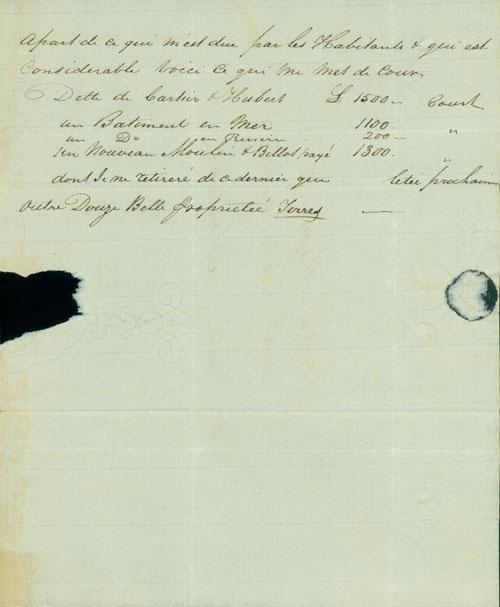 Apart de ce qui m'est due par les Habitants & qui est
Considerable voici ce qui me met de cour
Dette de Cartier & Hubert £ 1500 Court
un Batiment en Mer 1100 "
un Do en Rivier 200
un Nouveau Moulin & Billot payé 1300 "
dont Je ne retireré de ce dernier que letée prochain
Outre Douze Belle proprieteé Terres